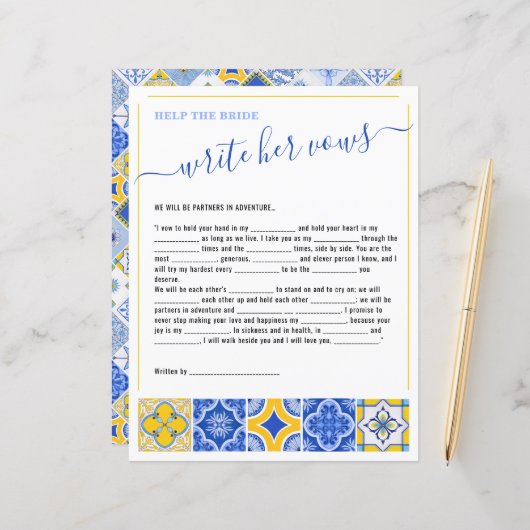 HELP THE BRIDE
write her vows
WE WILL BE PARTNERS IN ADVENTURE...
"I vow to hold your hand in my ____________ and hold your heart in my
____________ as long as we live. I take you as my ____________ through the
____________ times and the ____________ times, side by side. You are the
most ____________, generous, ____________ and clever person I know, and I
will try my hardest every ____________ to be the ____________ you
deserve.
We will be each other's ____________ to stand on and to cry on; we will
____________ each other up and hold each other ____________; we will be
partners in adventure and ________ ___ ____________. I promise to
never stop making your love and happiness my ____________, because your
joy is my ____________. In sickness and in health, in ____________ and
____________, I will walk beside you and I will love you, ____________."
Written by ________________________